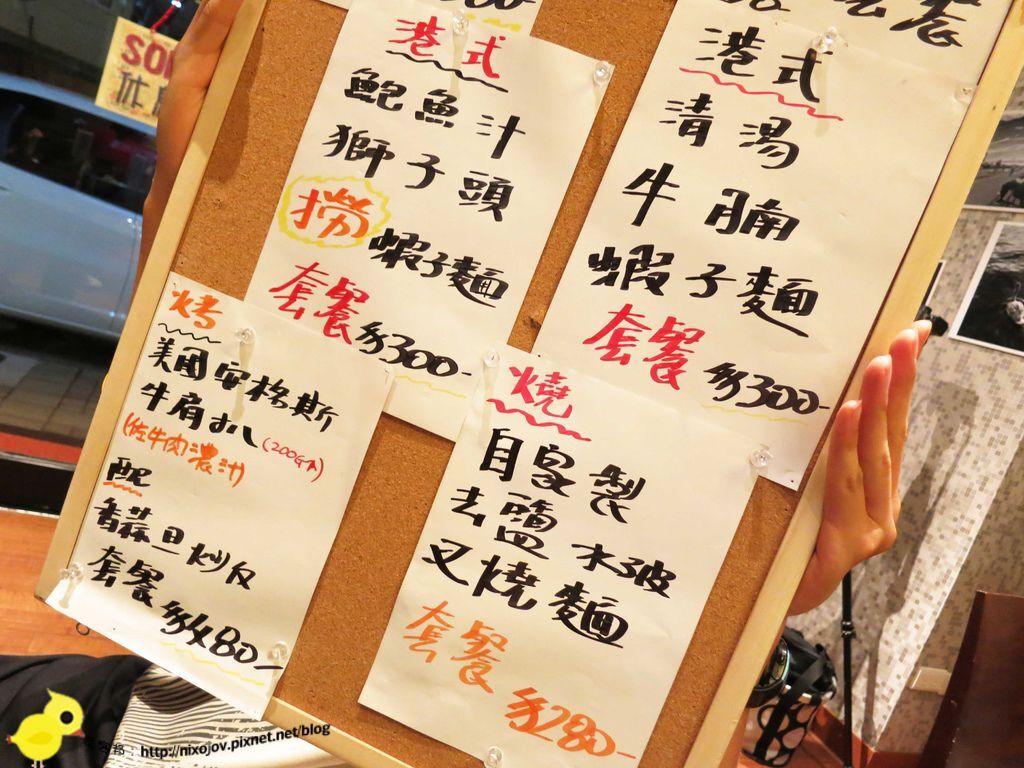 港式
鮑魚汁
獅子頭
撈 蝦子麵
套餐 $300-
港式
清湯
牛腩
蝦子麵
套餐 $300-
烤
美國安格斯
牛肩扒(200G)
(佐牛肉濃汁)
配
香蒜旦炒反
套餐
80-
燒
自家製
去鹽
叉燒麵
套餐
$280-
http://nixojov.pixnet.net/blog